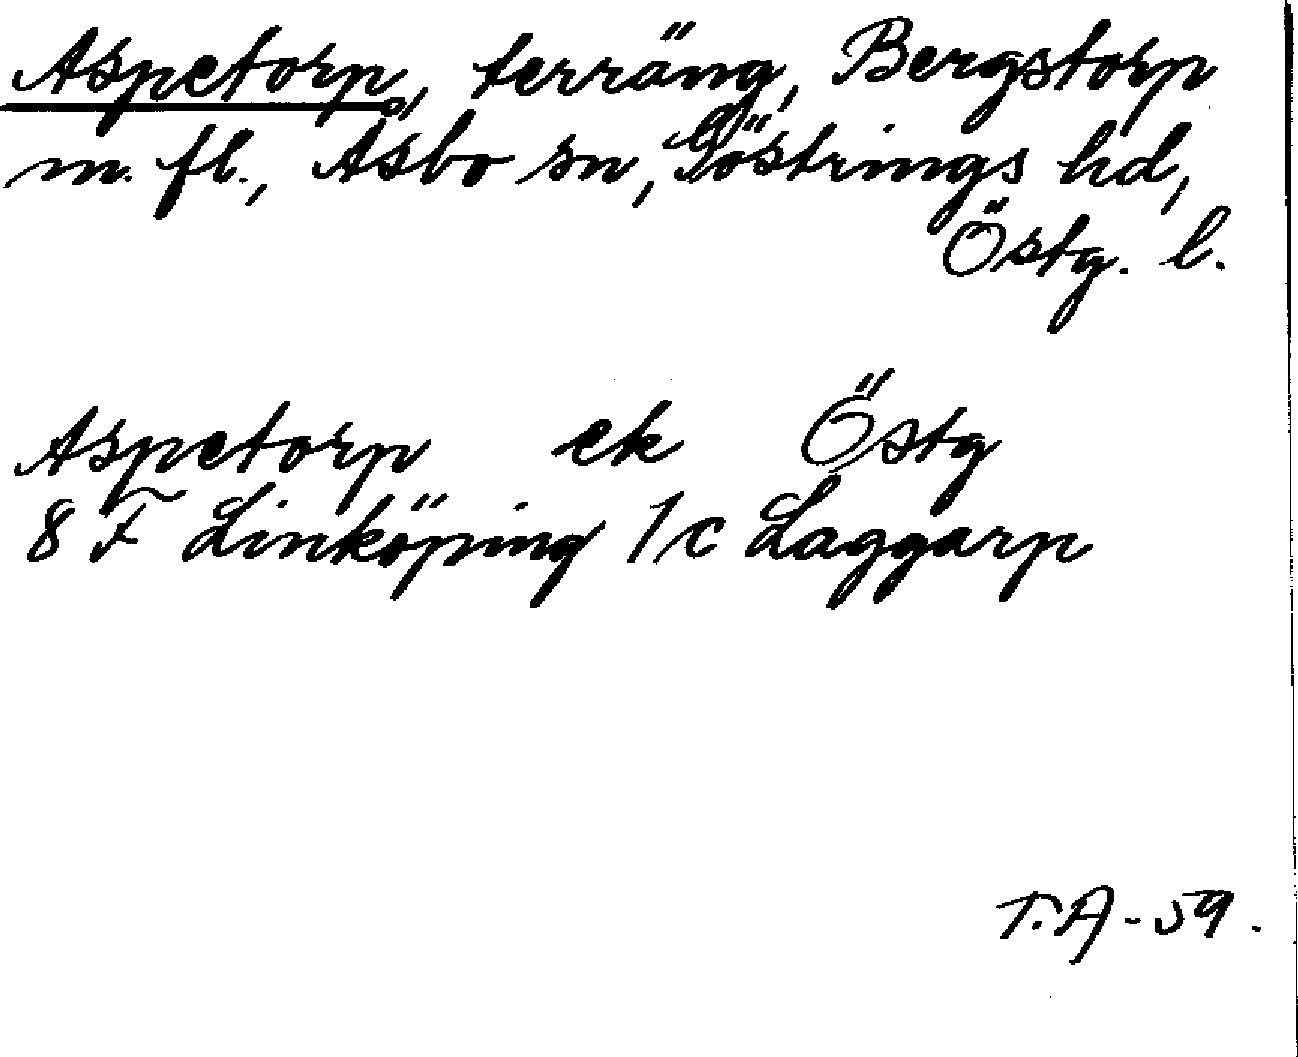 Aspetorp, terräng, Bergstorp
m. fl., Åsbo sn, Göstrings hd,
Östg. l.
Aspetorp ek Östg
8 F Linköping 1 c Laggarp
T.A-59.